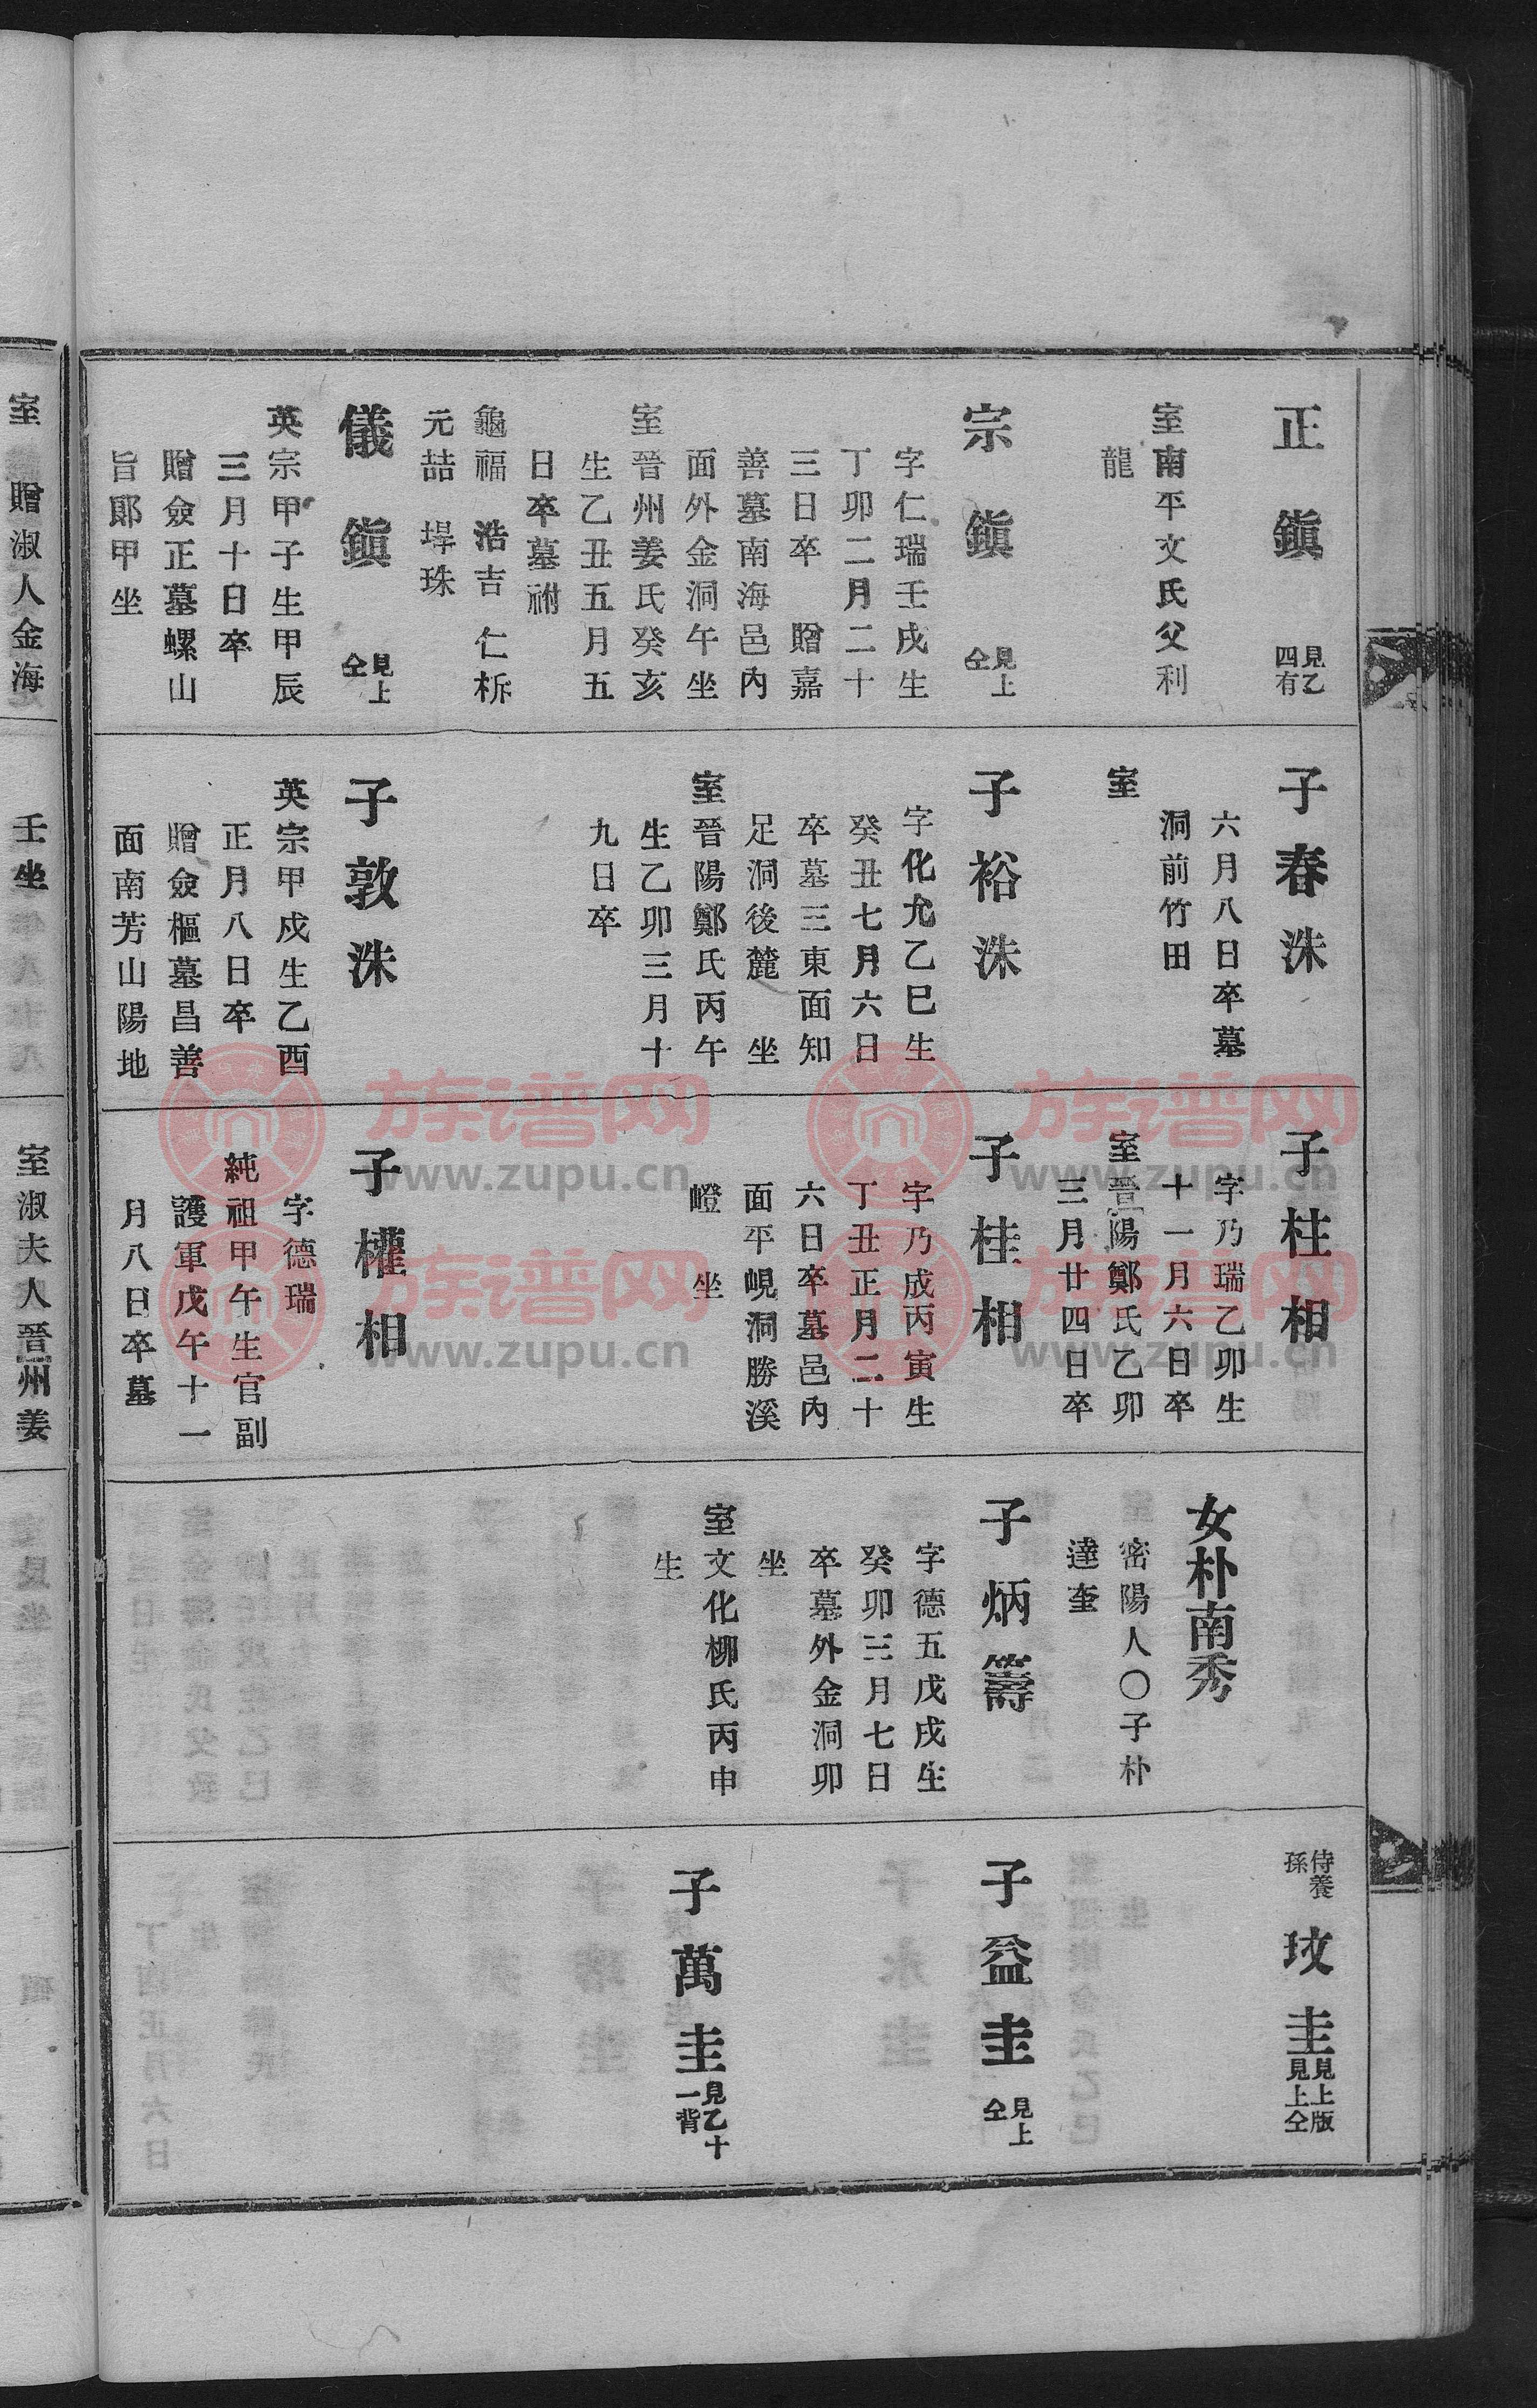 正鎭 見乙四有
室南平文氏父利
龍
宗鎭 見上仝
字仁瑞壬戌生
丁卯二月二十
三日卒 贈嘉
善墓南海邑內
面外金洞午坐
室晉州姜氏癸亥
生乙丑五月五
日卒墓祔
龜福 浩吉 仁柝
元喆 墿珠
儀鎭 見上仝
英宗甲子生甲辰
三月十日卒
贈僉正墓螺山
旨鄖甲坐
子春洙
六月八日卒墓
洞前竹田
室
子裕洙
字化允乙巳生
癸丑七月六日
卒墓三東面知
足洞後麓 坐
室晉陽鄭氏丙午
生乙卯三月十
九日卒
子敦洙
英宗甲戍生乙酉
正月八日卒
贈僉樞墓昌善
面南芳山陽地
子柱相
字乃瑞乙卯生
十一月六日卒
室晉陽鄭氏乙卯
三月廿四日卒
子桂相
字乃成丙寅生
丁丑正月二十
六日卒墓邑內
面平峴洞勝溪
嶝 坐
子權相
字德瑞
純祖甲午生官副
護軍戊午十一
月八日卒墓
女朴南秀
密陽人〇子朴
達奎
子炳籌
字德五戊戌生
癸卯三月七日
卒墓外金洞卯
坐
室文化柳氏丙申
生
侍養孫 玟圭 見上版見上仝
子益圭 見上仝
子萬圭 見乙十一背
室 贈淑人金海
壬坐
室淑夫人晉州姜
族谱网
www.zupu.cn
族谱网
www.zupu.cn
族谱网
www.zupu.cn
族谱网
www.zupu.cn